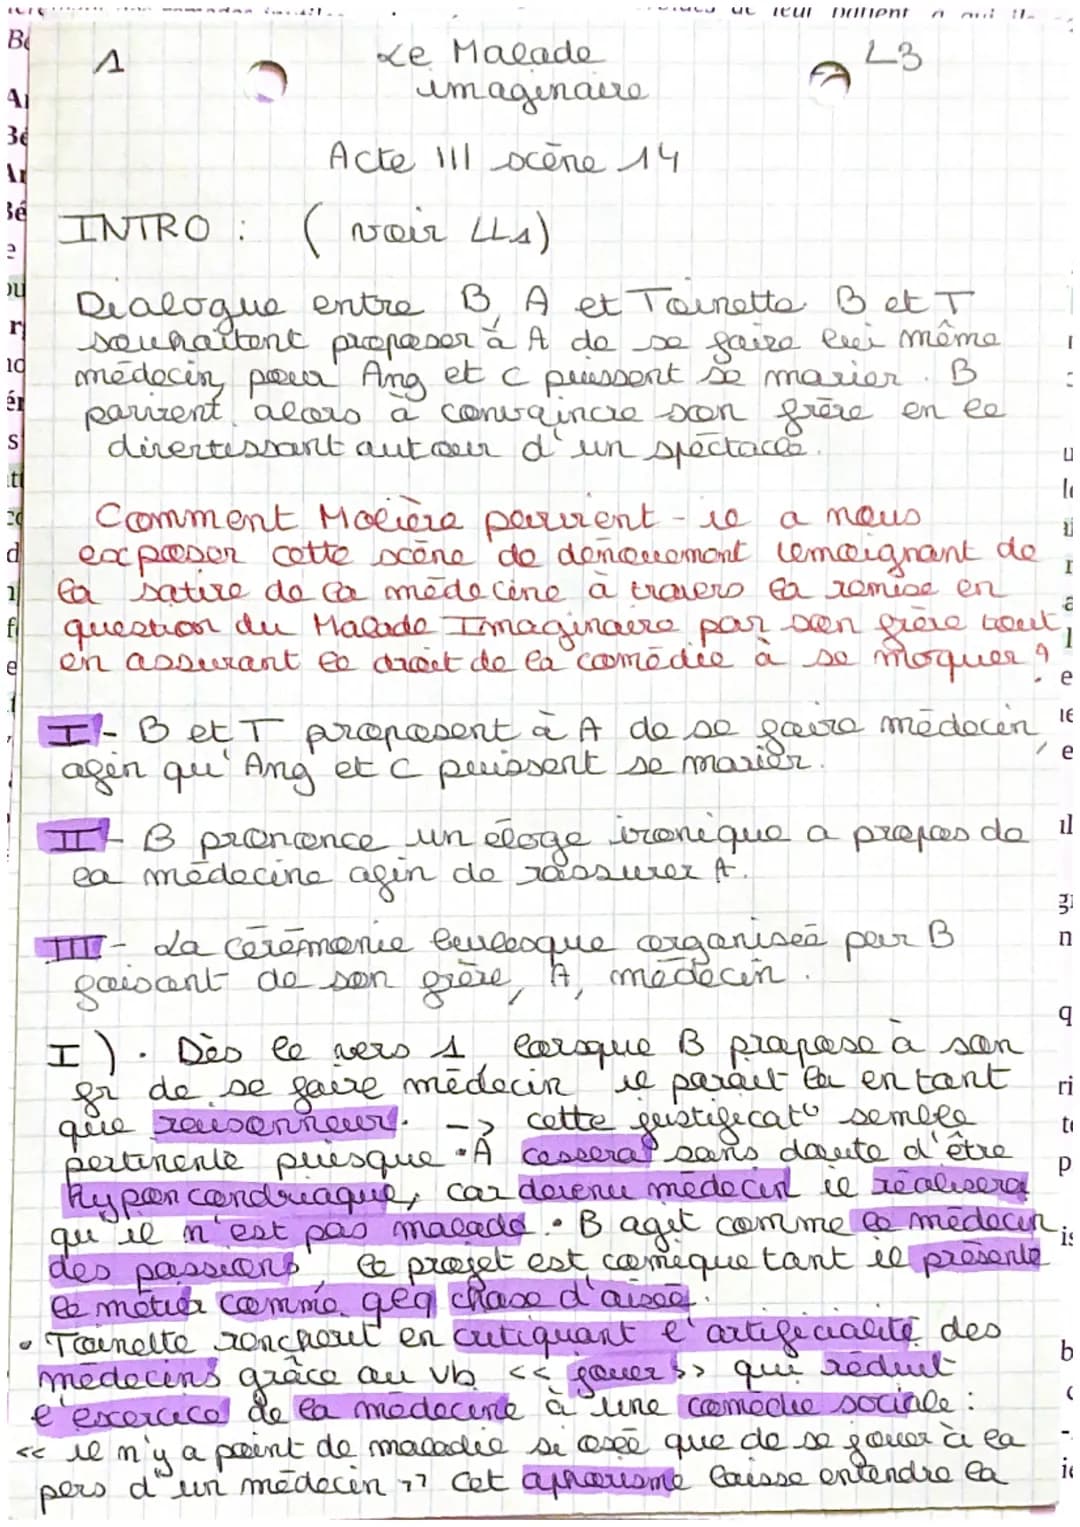 1 Le Malade L3
imaginaire
Acte III scène 14
INTRO : ( voir LL1)
Dialogue entre B, A et Toinette. B et T
souhaitent proposer à A de se faire lui même
médecin, pour Ang et C puissent se marier. B
parvient alors à convaincre son frère en le
divertissant autour d'un spectacle.
Comment Molière parvient-il a nous
exposer cette scène de dénouement témoignant de
la satire de la médecine à travers la remise en
question du Malade Imaginaire par son frère tout
en assurant le droit de la comédie à se moquer ?
I - B et T proposent à A de se faire médecin
afin qu'Ang et C puissent se marier.
II - B prononce un éloge ironique a propos de
la médecine afin de rassurer A.
III - La cérémonie burlesque organisée par B
faisant de son frère, A, médecin.
I) . Dès le vers 1, lorsque B propose à son
fr de se faire médecin il paraît là en tant
que raisonneur. -> cette justificat° semble
pertinente puisque • A cessera sans doute d'être
hypocondriaque, car devenu médecin il réalisera
qu'il n'est pas malade. • B agit comme le médecin
des passions le projet est comique tant il présente
le métier comme qlq chose d'aisée.
• Toinette renchérit en critiquant l'artificialité des
médecins grâce au vb << jouer >> qui réduit
l'exercice de la médecine à une comédie sociale :
<< il n'y a point de maladie si osée que de se jouer à la
pers d'un médecin >> Cet aphorisme laisse entendre la